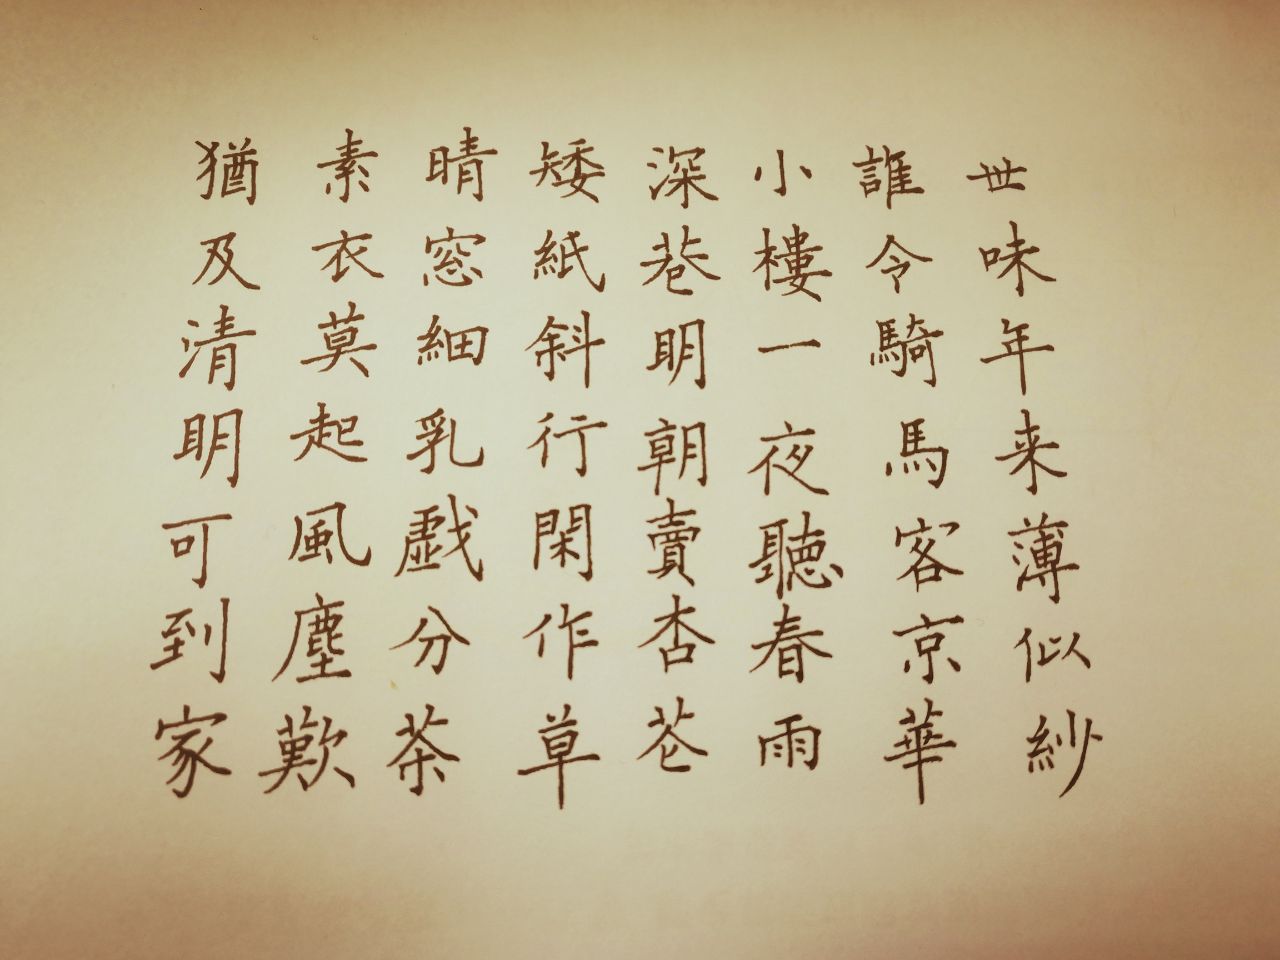 世味年来薄似紗
誰令騎馬客京華
小樓一夜聽春雨
深巷明朝賣杏花
矮紙斜行閑作草
晴窓細乳戲分茶
素衣莫起風塵歎
猶及清明可到家